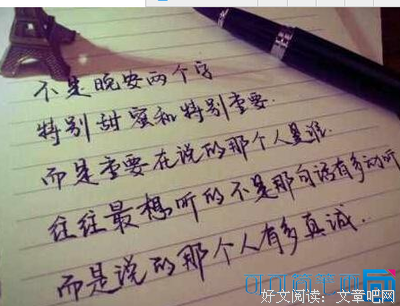 不是晚安两个字
特别甜蜜和特别重要.
而是重要在说的那个人是谁.
往往最想听的不是那句话有多动听
而是说的那个人有多真诚.
好文阅读：文章吧网